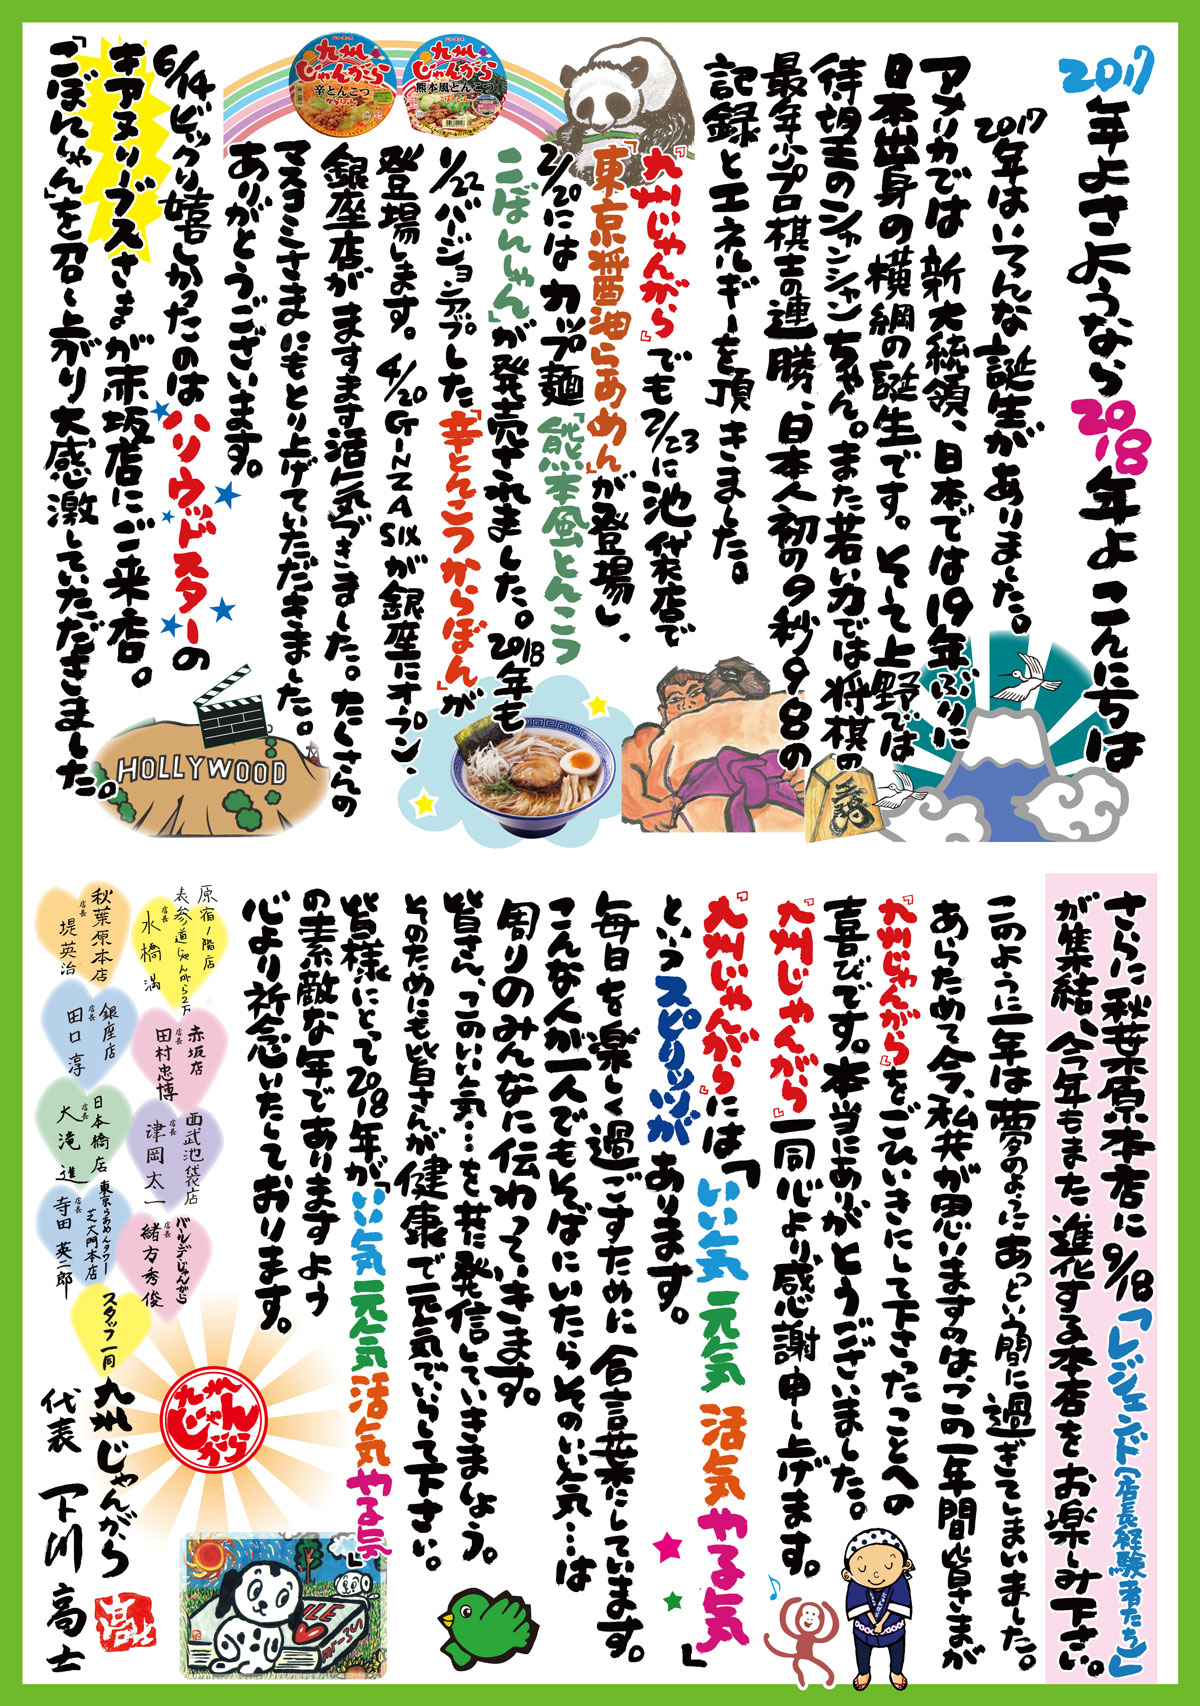 2017年よさようなら2018年よこんにちは
2017年はいろんな誕生がありました。
アメリカでは新大統領、日本では19年ぶりに
日本出身の横綱の誕生です。そして上野では
待望のシャンシャンちゃん。また若い力では将棋の
最年少プロ棋士の連勝、日本人初の9秒98の
記録とエネルギーを頂きました。
『九州じゃんがら』でも2/23に池袋店で
「東京醤油らあめん」が登場し、
2/20にはカップ麺「熊本風とんこつ
こぼんしゃん」が発売されました。2018年も
1/22バージョンアップした「辛とんこつからぼん」が
登場します。4/20GINZA SIXが銀座にオープン、
銀座店がますます活気づきました。たくさんの
マスコミさまにもとり上げていただきました。
ありがとうございます。
6/14ビックリ嬉しかったのはハリウッドスターの
キアヌリーブスさまが赤坂店にご来店。
「こぼんしゃん」を召し上がり大感激していただきました。
九州じゃんがら
辛とんこつ
からぼん
九州じゃんがら
熊本風とんこつ
こぼんしゃん
HOLLYWOOD
さらに秋葉原本店に9/18「レジェンド(店長経験者たち)」
が集結、今年もまた進化する本店をお楽しみ下さい。
このように一年は夢のようにあっという間に過ぎてしまいました。
あらためて今、私共が思いますのは、この一年間皆さまが
『九州じゃんがら』をごひいきにして下さったことへの
喜びです。本当にありがとうございました。
『九州じゃんがら』一同心より感謝申し上げます。
『九州じゃんがら』には「いい気 元気 活気 やる気」
というスピリッツがあります。
毎日を楽しく過ごすために合言葉にしています。
こんな人が一人でもそばにいたらそのいい気…は
周りのみんなに伝わっていきます。
皆さん、このいい気…を共に発信していきましょう。
そのためにも皆さんが健康で元気でいらして下さい。
皆様にとって2018年が「いい気 元気 活気 やる気」
の素敵な年でありますよう
心より祈念いたしております。
原宿1階店
表参道じゃんがら2万
店長 水橋 満
秋葉原本店
店長 堤 英治
赤坂店
店長 田村忠博
銀座店
店長 田口 淳
西武池袋店
店長 津岡太一
日本橋店
店長 大滝 進
バルデじゃんがら
店長 緒方秀俊
東京らあめんタワー
芝大門本店
店長 寺田英二郎
スタッフ一同
九州じゃんがら
代表 下川高士
九州じゃんがら